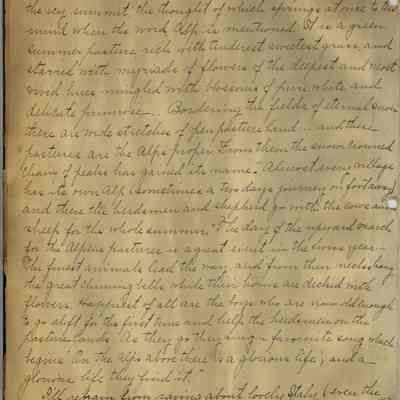 the icy summit the thought of which springs at once to the
mind when the word Alp is mentioned. It is a green
summer pasture rich with tenderest sweetest grass, and
starred with myriads of flowers of the deepest and most
vivid hues mingled with blossoms of pure white and
delicate primrose... Bordering the fields of eternal snow
there are wide stretches of open pasture land... and these
pastures are the Alps proper. From them the snow crowned
chain of peaks has gained its name." Almost every village
has its own Alp (sometimes a two days journey on foot away)
and there the herdsmen and shepherd go with the cows and
sheep for the whole summer. "The day of the upward march
for the Alpine pastures is a great event in the Swiss year—
The finest animals lead the way, and from their necks hang
the great chiming bells while their horns are decked with
flowers. Happiest of all are the boys who are now old enough
to go aloft for the first time and help the herdsmen on the
pasturelands. As they go they sing a favourite song which
begins 'On the Alps above there is a glorious life', and a
glorious life they find it."
I'll refrain from raving about lovely Italy (even the